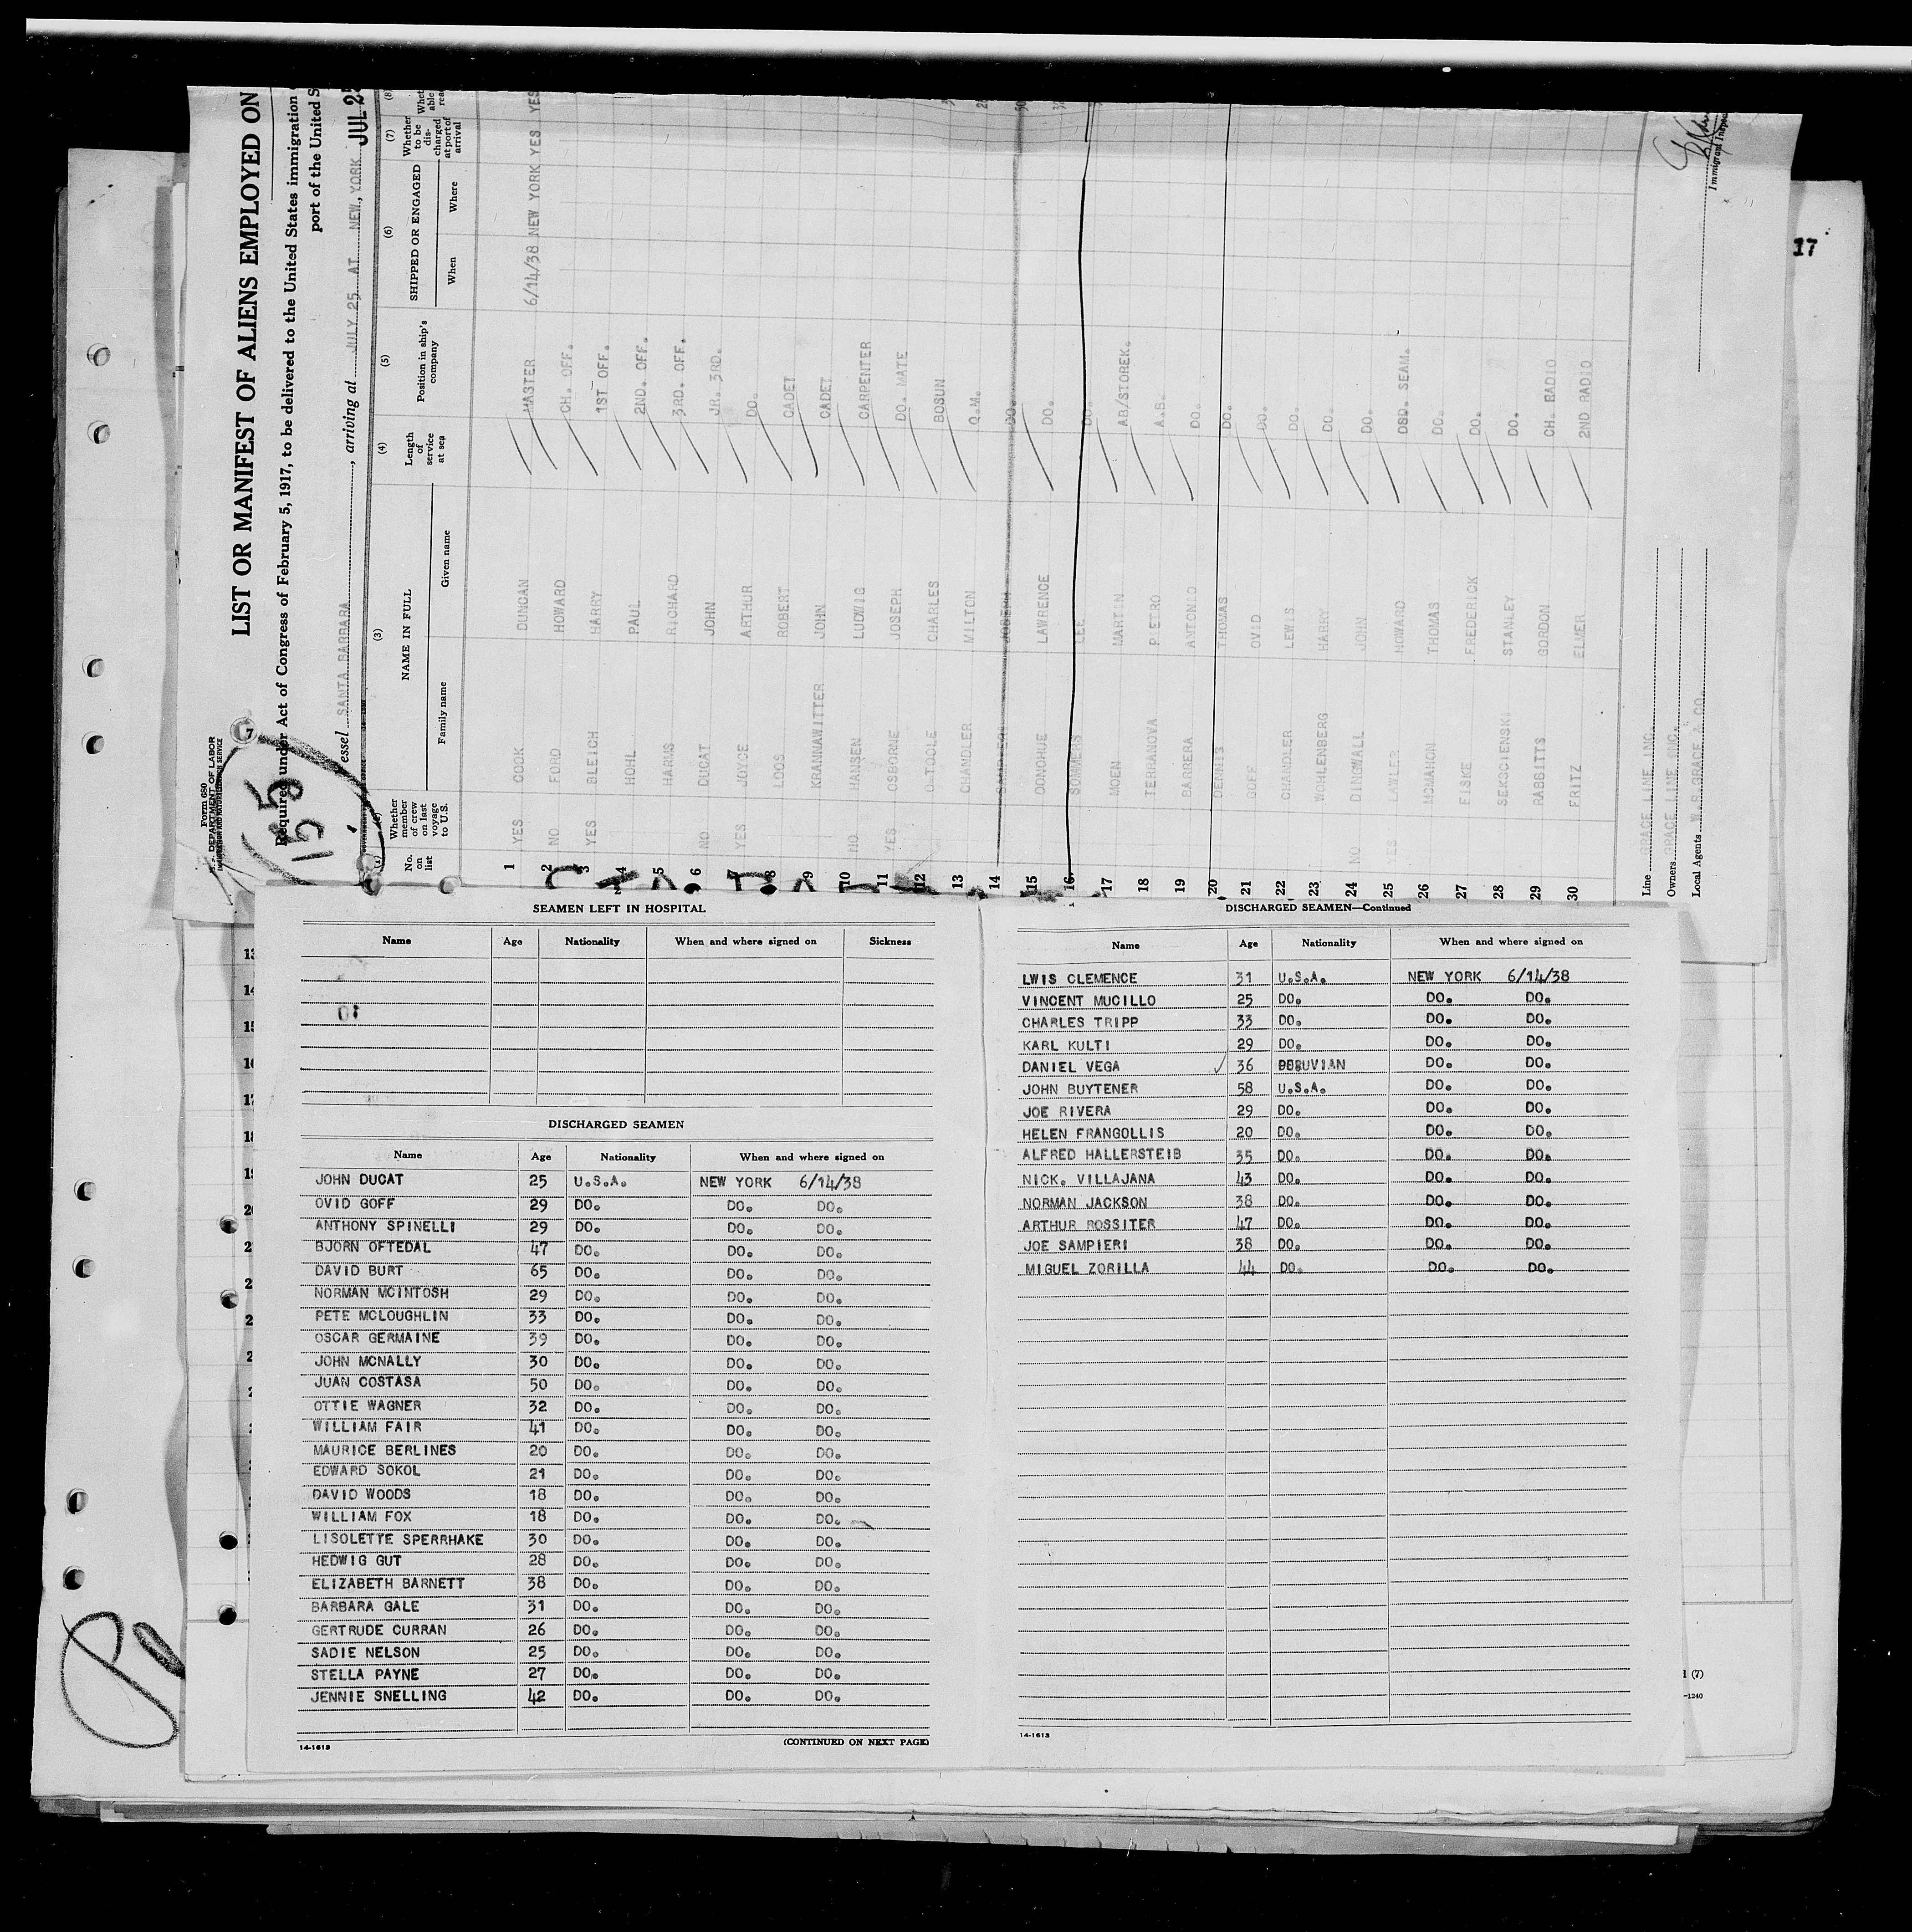 LIST OR MANIFEST OF ALIENS EMPLOYED ON
Required under Act of Congress of February 5, 1917, to be delivered to the United States immigration
port of the United S
Form 680
U. S. DEPARTMENT OF LABOR
IMMIGRATION AND NATURALIZATION SERVICE
155
Vessel SANTA BARBARA, arriving at JULY 25 AT NEW YORK, JUL 25
No. on list
Whether member of crew on last voyage to U.S.
(3) NAME IN FULL
Family name Given name
(4) Length of service at sea
(5) Position in ship's company
(6) SHIPPED OR ENGAGED
When Where
(7) Whether to be discharged at port of arrival
(8)
1 YES COOK DUNCAN MASTER 6/14/38 NEW YORK YES YES
2 NO FORD HOWARD CH. OFF.
3 YES BLEICH HARRY 1ST OFF.
4 HOHL PAUL 2ND. OFF.
5 HARMS RICHARD 3RD. OFF.
6 NO DUCAT JOHN JR. 3RD.
7 YES JOYCE ARTHUR DO.
8 LOOS ROBERT CADET
9 KRANNAWITTER JOHN CADET
10 NO HANSEN LUDWIG CARPENTER
11 YES OSBORNE JOSEPH DO. MATE
12 O'TOOLE CHARLES BOSUN
13 CHANDLER MILTON Q.M.
14 JOSEPH DO.
15 DONOHUE LAWRENCE DO.
16 SOMMERS LEE DO.
17 MOEN MARTIN AB/STOREK.
18 TERRANOVA PIETRO A.B.
19 BARRERA ANTONIO DO.
20 DENNIS THOMAS DO.
21 GOFF OVID DO.
22 CHANDLER LEWIS DO.
23 WOHLENBERG HARRY DO.
24 NO DINGWALL JOHN DO.
25 YES LAWLER HOWARD OSD. SEAM.
26 MCMAHON THOMAS DO.
27 FISKE FREDERICK DO.
28 SEKSCIENSKI STANLEY DO.
29 RABBITTS GORDON CH. RADIO
30 FRITZ ELMER 2ND RADIO
Line GRACE LINE INC.
Owners GRACE LINE INC.
Local Agents W.R.GRACE & CO.
Immigrant Inspec
17
SEAMEN LEFT IN HOSPITAL
Name Age Nationality When and where signed on Sickness
DISCHARGED SEAMEN
Name Age Nationality When and where signed on
JOHN DUCAT 25 U.S.A. NEW YORK 6/14/38
OVID GOFF 29 DO. DO. DO.
ANTHONY SPINELLI 29 DO. DO. DO.
BJORN OFTEDAL 47 DO. DO. DO.
DAVID BURT 65 DO. DO. DO.
NORMAN MCINTOSH 29 DO. DO. DO.
PETE MCLOUGHLIN 33 DO. DO. DO.
OSCAR GERMAINE 39 DO. DO. DO.
JOHN MCNALLY 30 DO. DO. DO.
JUAN COSTASA 50 DO. DO. DO.
OTTIE WAGNER 32 DO. DO. DO.
WILLIAM FAIR 41 DO. DO. DO.
MAURICE BERLINES 20 DO. DO. DO.
EDWARD SOKOL 21 DO. DO. DO.
DAVID WOODS 18 DO. DO. DO.
WILLIAM FOX 18 DO. DO. DO.
LISOLETTE SPERRHAKE 30 DO. DO. DO.
HEDWIG GUT 28 DO. DO. DO.
ELIZABETH BARNETT 38 DO. DO. DO.
BARBARA GALE 31 DO. DO. DO.
GERTRUDE CURRAN 26 DO. DO. DO.
SADIE NELSON 25 DO. DO. DO.
STELLA PAYNE 27 DO. DO. DO.
JENNIE SNELLING 42 DO. DO. DO.
14-1613 (CONTINUED ON NEXT PAGE)
DISCHARGED SEAMEN—Continued
Name Age Nationality When and where signed on
LWIS CLEMENCE 31 U.S.A. NEW YORK 6/14/38
VINCENT MUCILLO 25 DO. DO. DO.
CHARLES TRIPP 33 DO. DO. DO.
KARL KULTI 29 DO. DO. DO.
DANIEL VEGA 36 PERUVIAN DO. DO.
JOHN BUYTENER 58 U.S.A. DO. DO.
JOE RIVERA 29 DO. DO. DO.
HELEN FRANGOLLIS 20 DO. DO. DO.
ALFRED HALLERSTEIB 35 DO. DO. DO.
NICK. VILLAJANA 43 DO. DO. DO.
NORMAN JACKSON 38 DO. DO. DO.
ARTHUR ROSSITER 47 DO. DO. DO.
JOE SAMPIERI 38 DO. DO. DO.
MIGUEL ZORILLA 44 DO. DO. DO.
14-1613